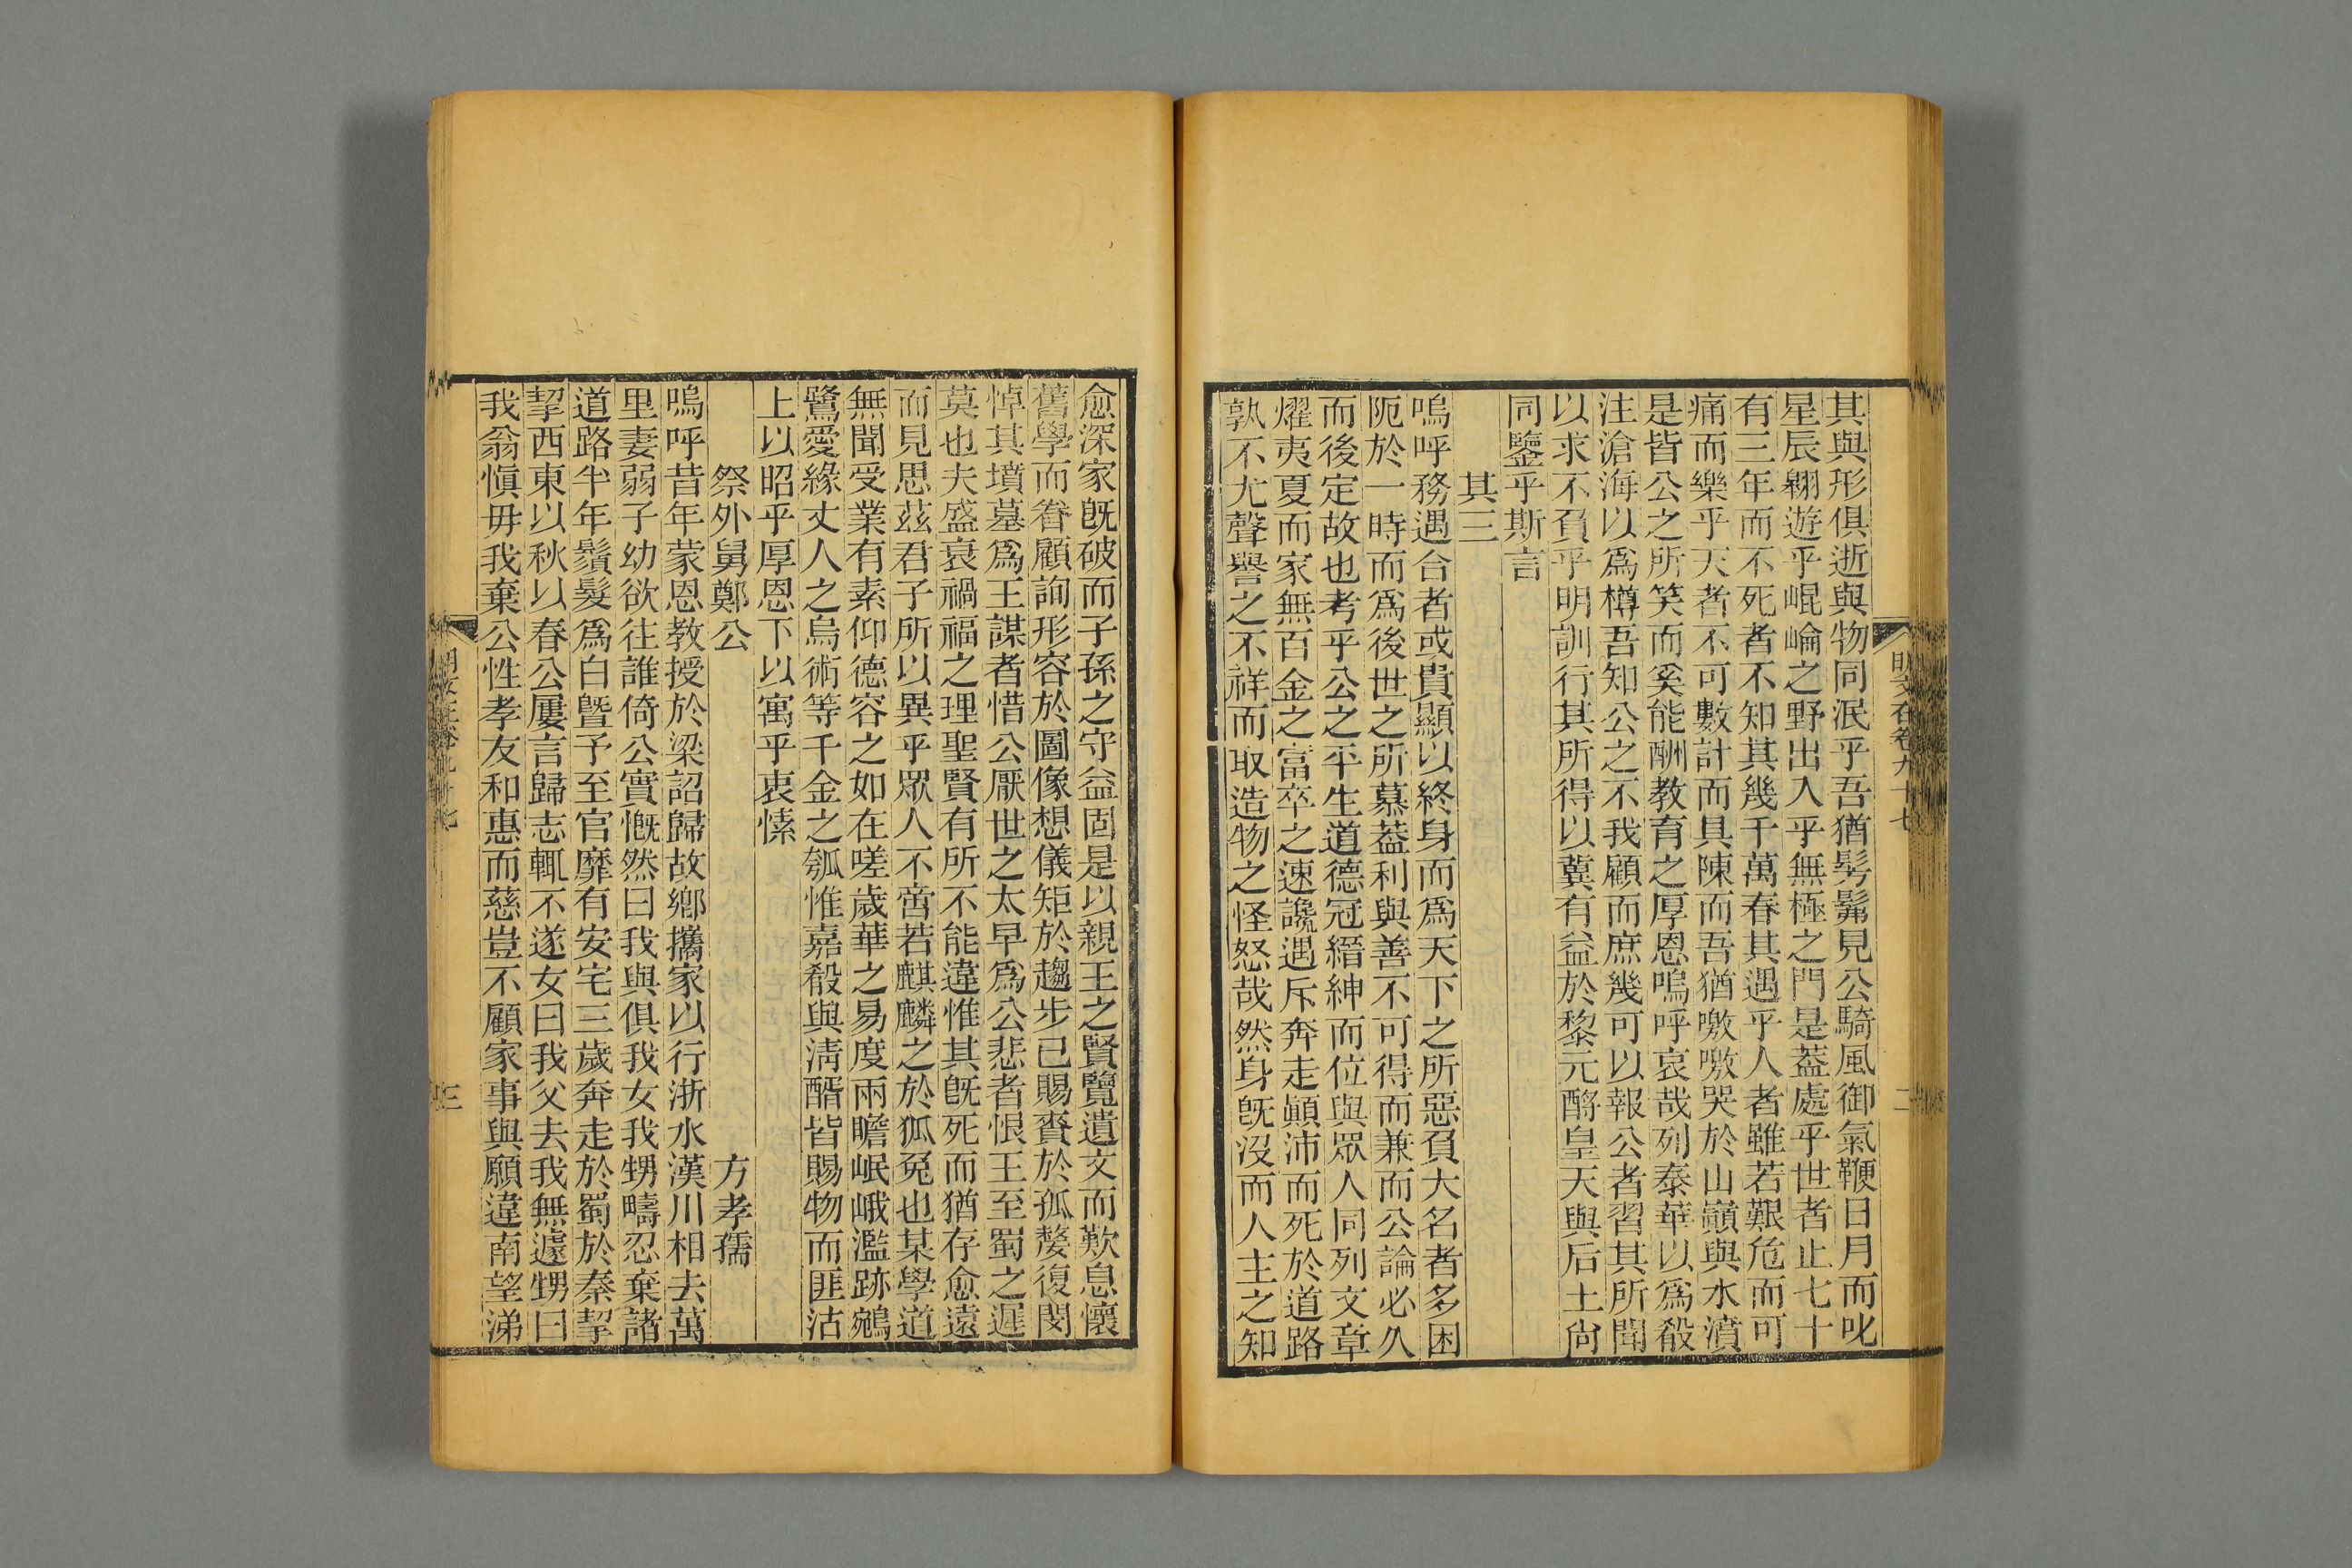 其與形俱逝與物同泯乎吾猶髣髴見公騎風御氣鞭日月而叱
星辰翱遊乎崐崘之野出入乎無極之門是葢處乎世者止七十
有三年而不死者不知其幾千萬春其遇乎人者雖若艱危而可
痛而樂乎天者不可數計而具陳而吾猶噭噭哭於山巔與水濆
是皆公之所笑而奚能酬教育之厚恩嗚呼哀哉列泰華以爲殽
注滄海以爲樽吾知公之不我顧而庶幾可以報公者習其所聞
以求不負乎明訓行其所得以冀有益於黎元酹皇天與后土尙
同鑒乎斯言
其三
嗚呼務遇合者或貴顯以終身而爲天下之所惡負大名者多困
阨於一時而爲後世之所慕葢利與善不可得而兼而公論必久
而後定故也考乎公之平生道德冠縉紳而位與眾人同列文章
燿夷夏而家無百金之富卒之速讒遇斥奔走顚沛而死於道路
孰不尤聲譽之不祥而取造物之怪怒哉然身旣沒而人主之知
明文在卷九十七
二
愈深家旣破而子孫之守益固是以親王之賢覽遺文而歎息懷
舊學而眷顧詢形容於圖像想儀矩於趨步已賜賚於孤嫠復閔
悼其墳墓爲王謀者惜公厭世之太早爲公悲者恨王至蜀之遲
莫也夫盛衰禍福之理聖賢有所不能違惟其旣死而猶存愈遠
而見思茲君子所以異乎眾人不啻若麒麟之於狐兔也某學道
無聞受業有素仰德容之如在嗟歲華之易度兩瞻岷峨濫跡鵷
鷺愛緣丈人之烏術等千金之瓠惟嘉殽與淸醑皆賜物而匪沽
上以昭乎厚恩下以寓乎衷愫
祭外舅鄭公 方孝孺
嗚呼昔年蒙恩教授於梁詔歸故鄉攜家以行浙水漢川相去萬
里妻弱子幼欲往誰倚公實慨然曰我與俱我女我甥疇忍棄諸
道路半年鬚髮爲白曁予至官靡有安宅三歲奔走於蜀於秦挈
挈西東以秋以春公屢言歸志輒不遂女曰我父去我無遽甥曰
我翁愼毋我棄公性孝友和惠而慈豈不顧家事與願違南望涕
三